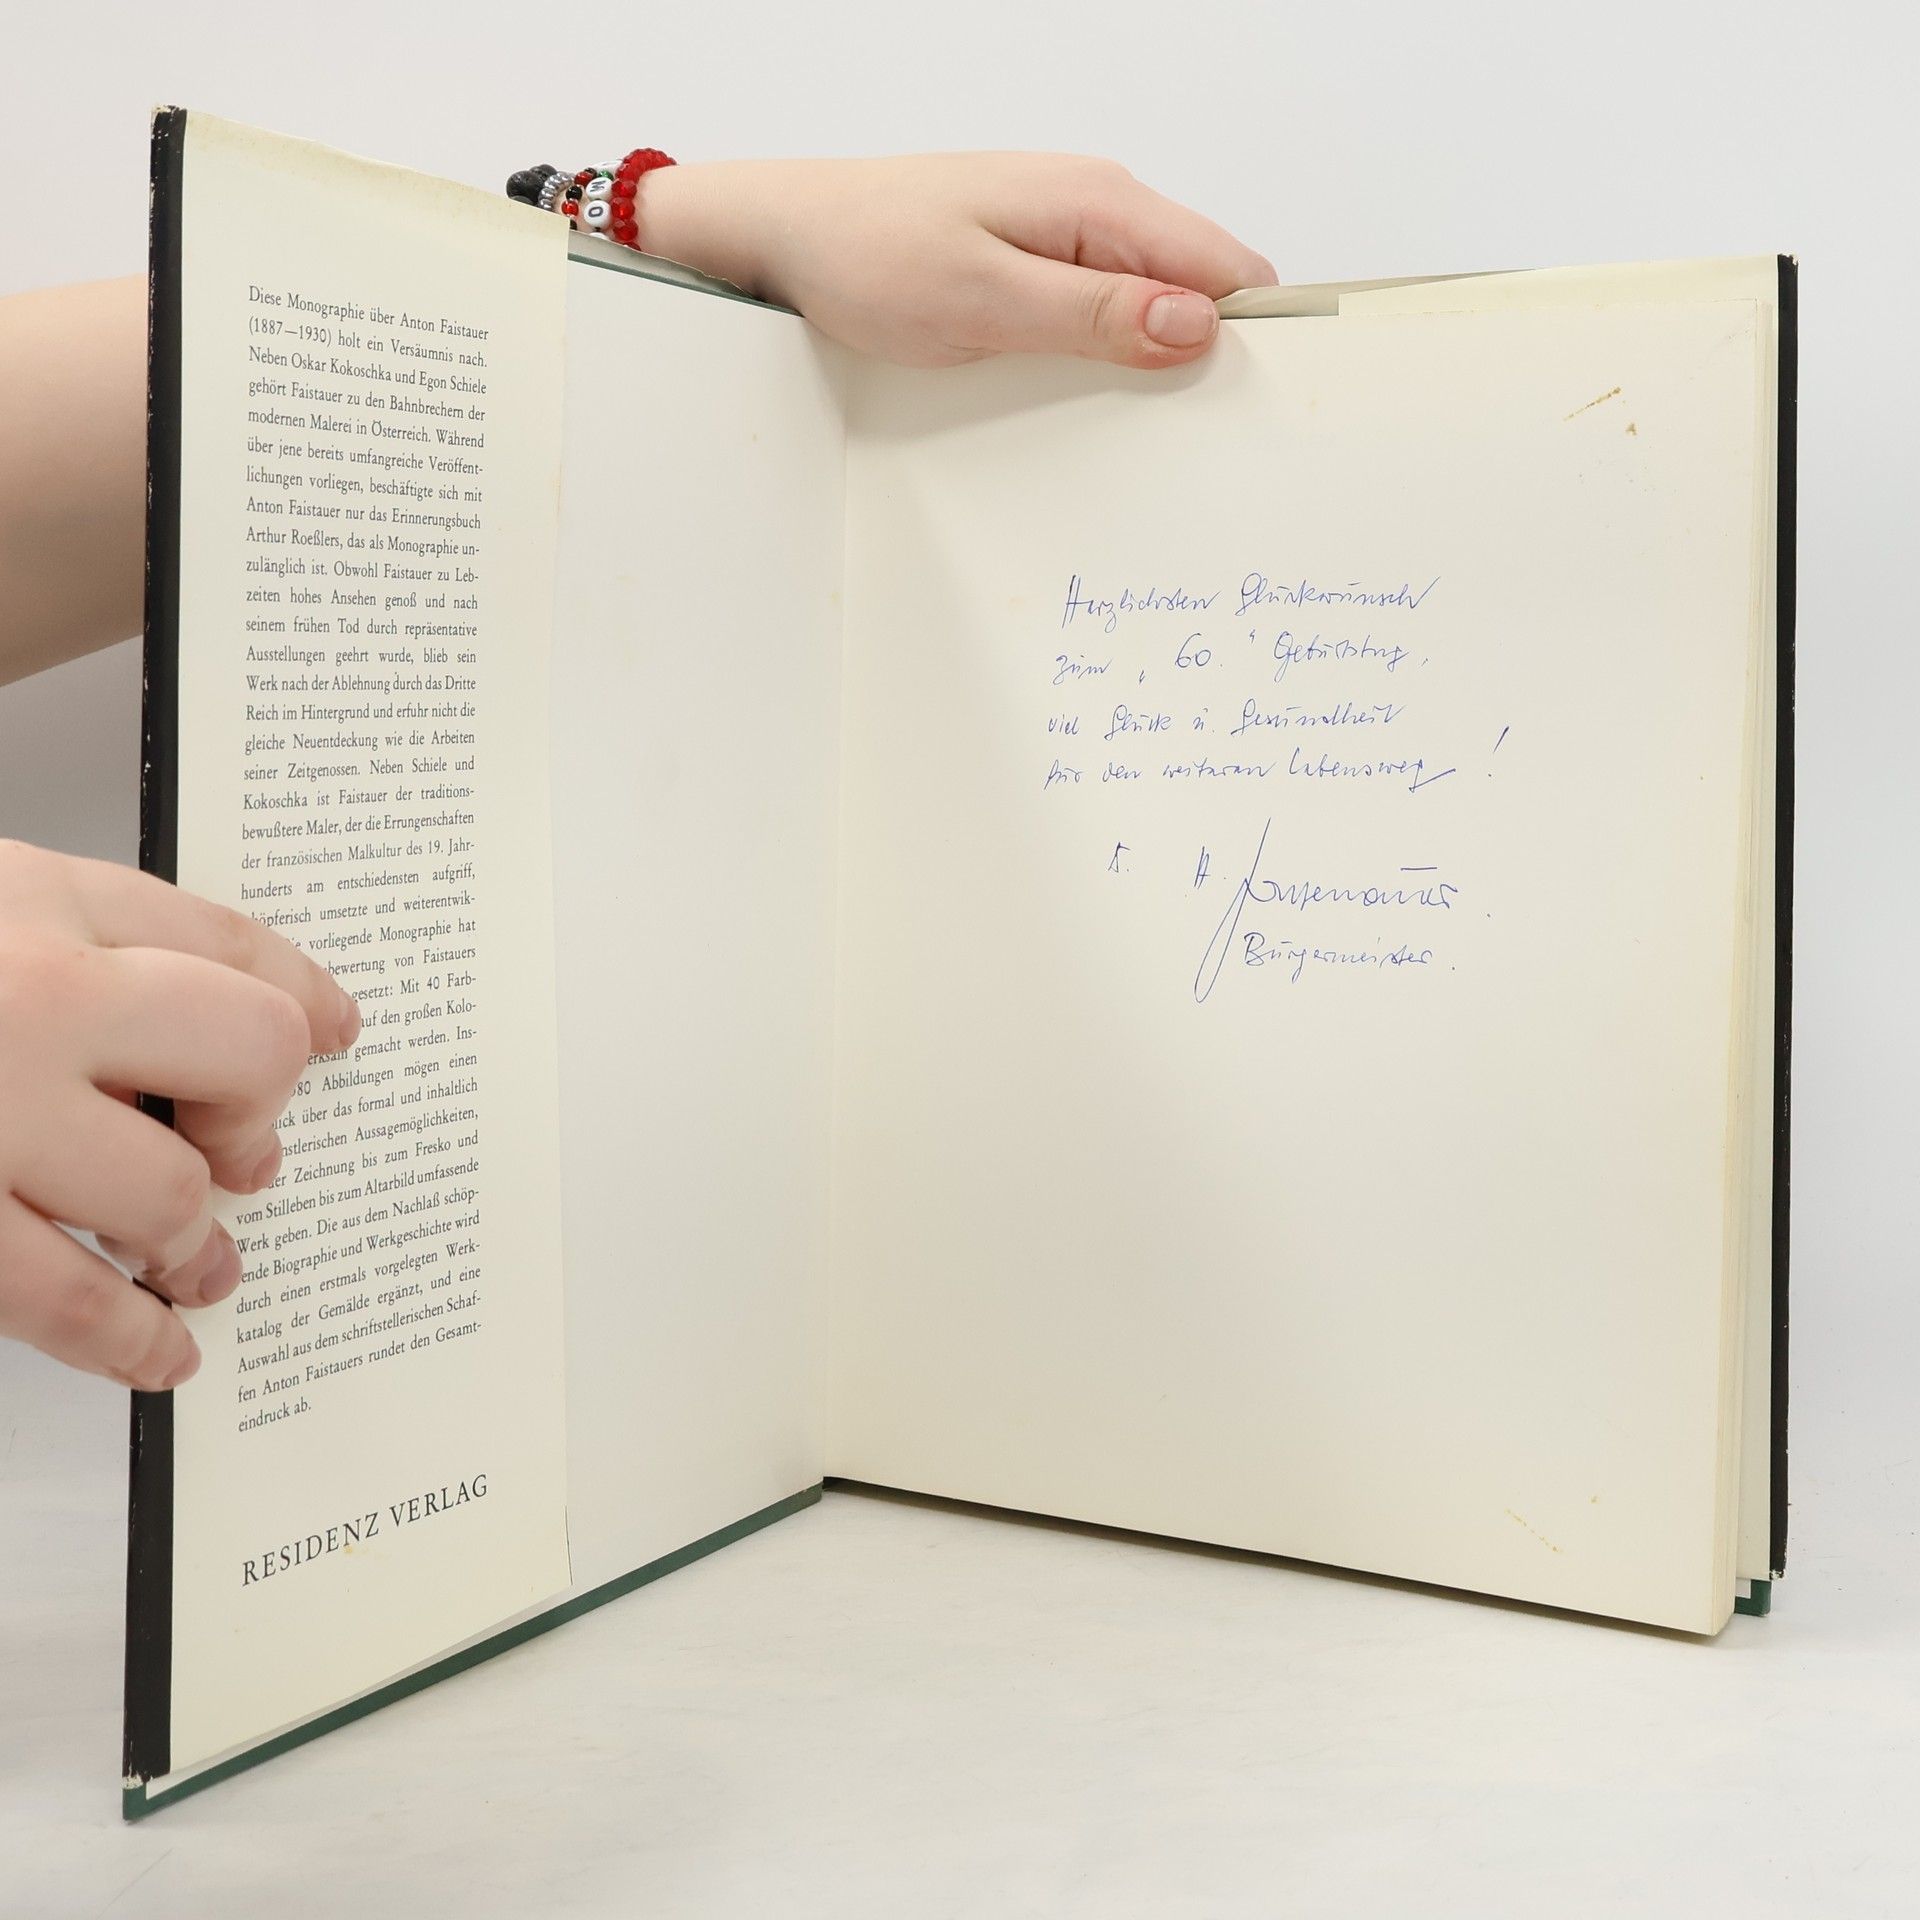 Diese Monographie über Anton Faistauer
(1887—1930) holt ein Versäumnis nach.
Neben Oskar Kokoschka und Egon Schiele
gehört Faistauer zu den Bahnbrechern der
modernen Malerei in Österreich. Während
über jene bereits umfangreiche Veröffent-
lichungen vorliegen, beschäftigte sich mit
Anton Faistauer nur das Erinnerungsbuch
Arthur Roeßlers, das als Monographie un-
zulänglich ist. Obwohl Faistauer zu Leb-
zeiten hohes Ansehen genoß und nach
seinem frühen Tod durch repräsentative
Ausstellungen geehrt wurde, blieb sein
Werk nach der Ablehnung durch das Dritte
Reich im Hintergrund und erfuhr nicht die
gleiche Neuentdeckung wie die Arbeiten
seiner Zeitgenossen. Neben Schiele und
Kokoschka ist Faistauer der traditions-
bewußtere Maler, der die Errungenschaften
der französischen Malkultur des 19. Jahr-
hunderts am entschiedensten aufgriff,
schöpferisch umsetzte und weiterentwik-
vorliegende Monographie hat
bewertung von Faistauers
gesetzt: Mit 40 Farb-
auf den großen Kolo-
gemacht werden. Ins-
80 Abbildungen mögen einen
über das formal und inhaltlich
Aussagemöglichkeiten,
der Zeichnung bis zum Fresko und
vom Stilleben bis zum Altarbild umfassende
Werk geben. Die aus dem Nachlaß schöp-
ende Biographie und Werkgeschichte wird
durch einen erstmals vorgelegten Werk-
katalog der Gemälde ergänzt, und eine
Auswahl aus dem schriftstellerischen Schaf-
fen Anton Faistauers rundet den Gesamt-
eindruck ab.
RESIDENZ VERLAG
Herzlichsten Glückwunsch
zum „60." Geburtstag,
viel Glück u. Gesundheit
für den weiteren Lebensweg!
Bürgermeister.